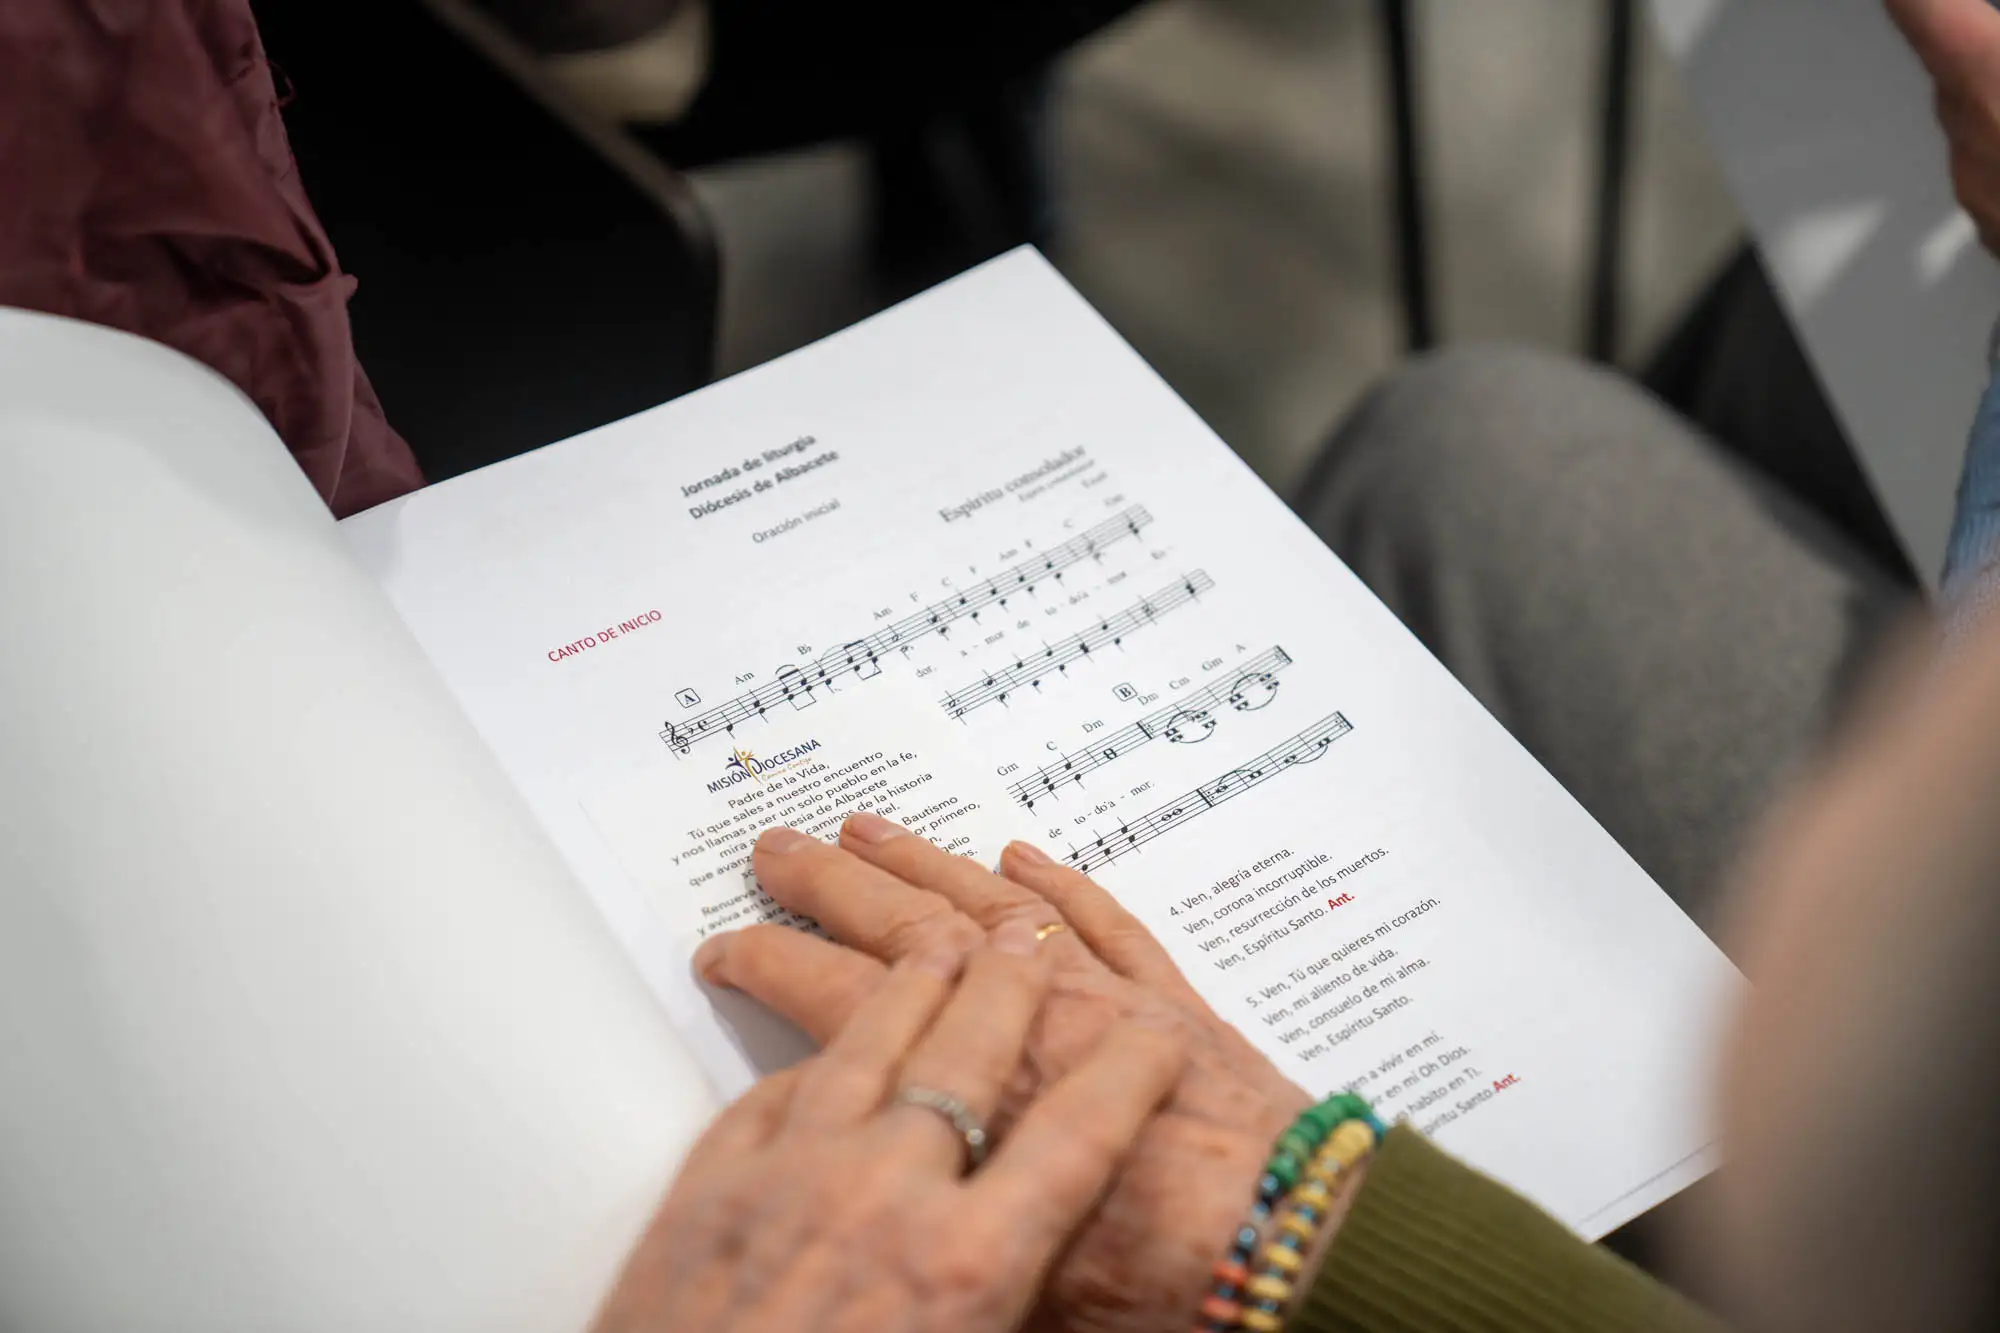 Jornada de liturgia
Diócesis de Albacete
Oración inicial
CANTO DE INICIO
Espíritu consolador
A
Am Bb Am F C F Am F C
dor. a - mor de to - do'a - mor Es -
B
Gm C Dm Dm Cm Gm A
de to - do'a - mor.
MISIÓN DIOCESANA
Camino Contigo
Padre de la Vida,
Tú que sales a nuestro encuentro
y nos llamas a ser un solo pueblo en la fe,
mira a lesia de Albacete
que avanz caminos de la historia
tu fiel.
Bautismo
or primero,
n,
gelio
os.
Renueva
y aviva en tu
para
4. Ven, alegría eterna.
Ven, corona incorruptible.
Ven, resurrección de los muertos.
Ven, Espíritu Santo. Ant.
5. Ven, Tú que quieres mi corazón.
Ven, mi aliento de vida.
Ven, consuelo de mi alma.
Ven, Espíritu Santo.
Ven a vivir en mi.
er en mí Oh Dios.
habito en Ti.
píritu Santo.Ant.